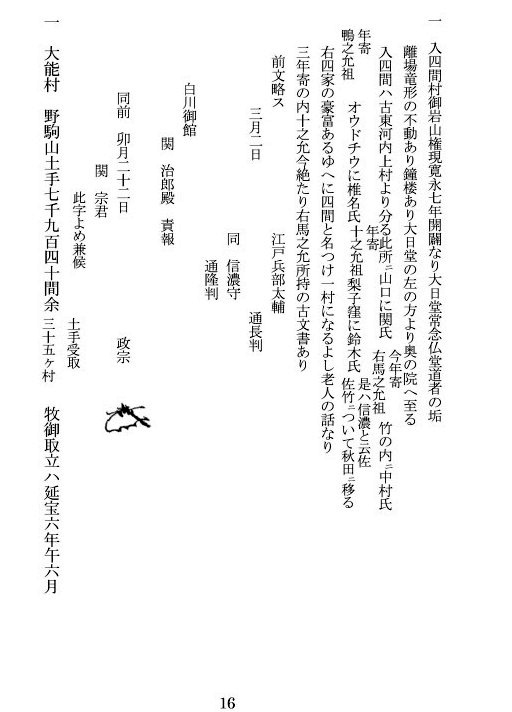 一　入四間村御岩山権現寛永七年開闢なり大日堂常念仏堂道者の垢
離場竜形の不動あり鐘楼あり大日堂の左の方より奥の院へ至る
入四間ハ古東河内上村より分る此所ニ山口に関氏　今年寄　右馬之允祖　竹の内ニ中村氏
年寄　鴨之允祖　オウドチウに椎名氏　年寄　十之允祖梨子窪に鈴木氏　是ハ信濃と云佐佐竹ニついて秋田ニ移る
右四家の豪富あるゆへに四間と名つけ一村になるよし老人の話なり
三年寄の内十之允今絶たり右馬之允所持の古文書あり
前文略ス　江戸兵部太輔
三月二日　通長判
同　信濃守
通隆判
白川御館
関　治郎殿　責報
同前　卯月二十二日　政宗
関　宗君
此字よめ兼候
一　大能村　野駒山土手七千九百四十間余　土手受取　三十五ヶ村　牧御取立ハ延宝六年午六月
16